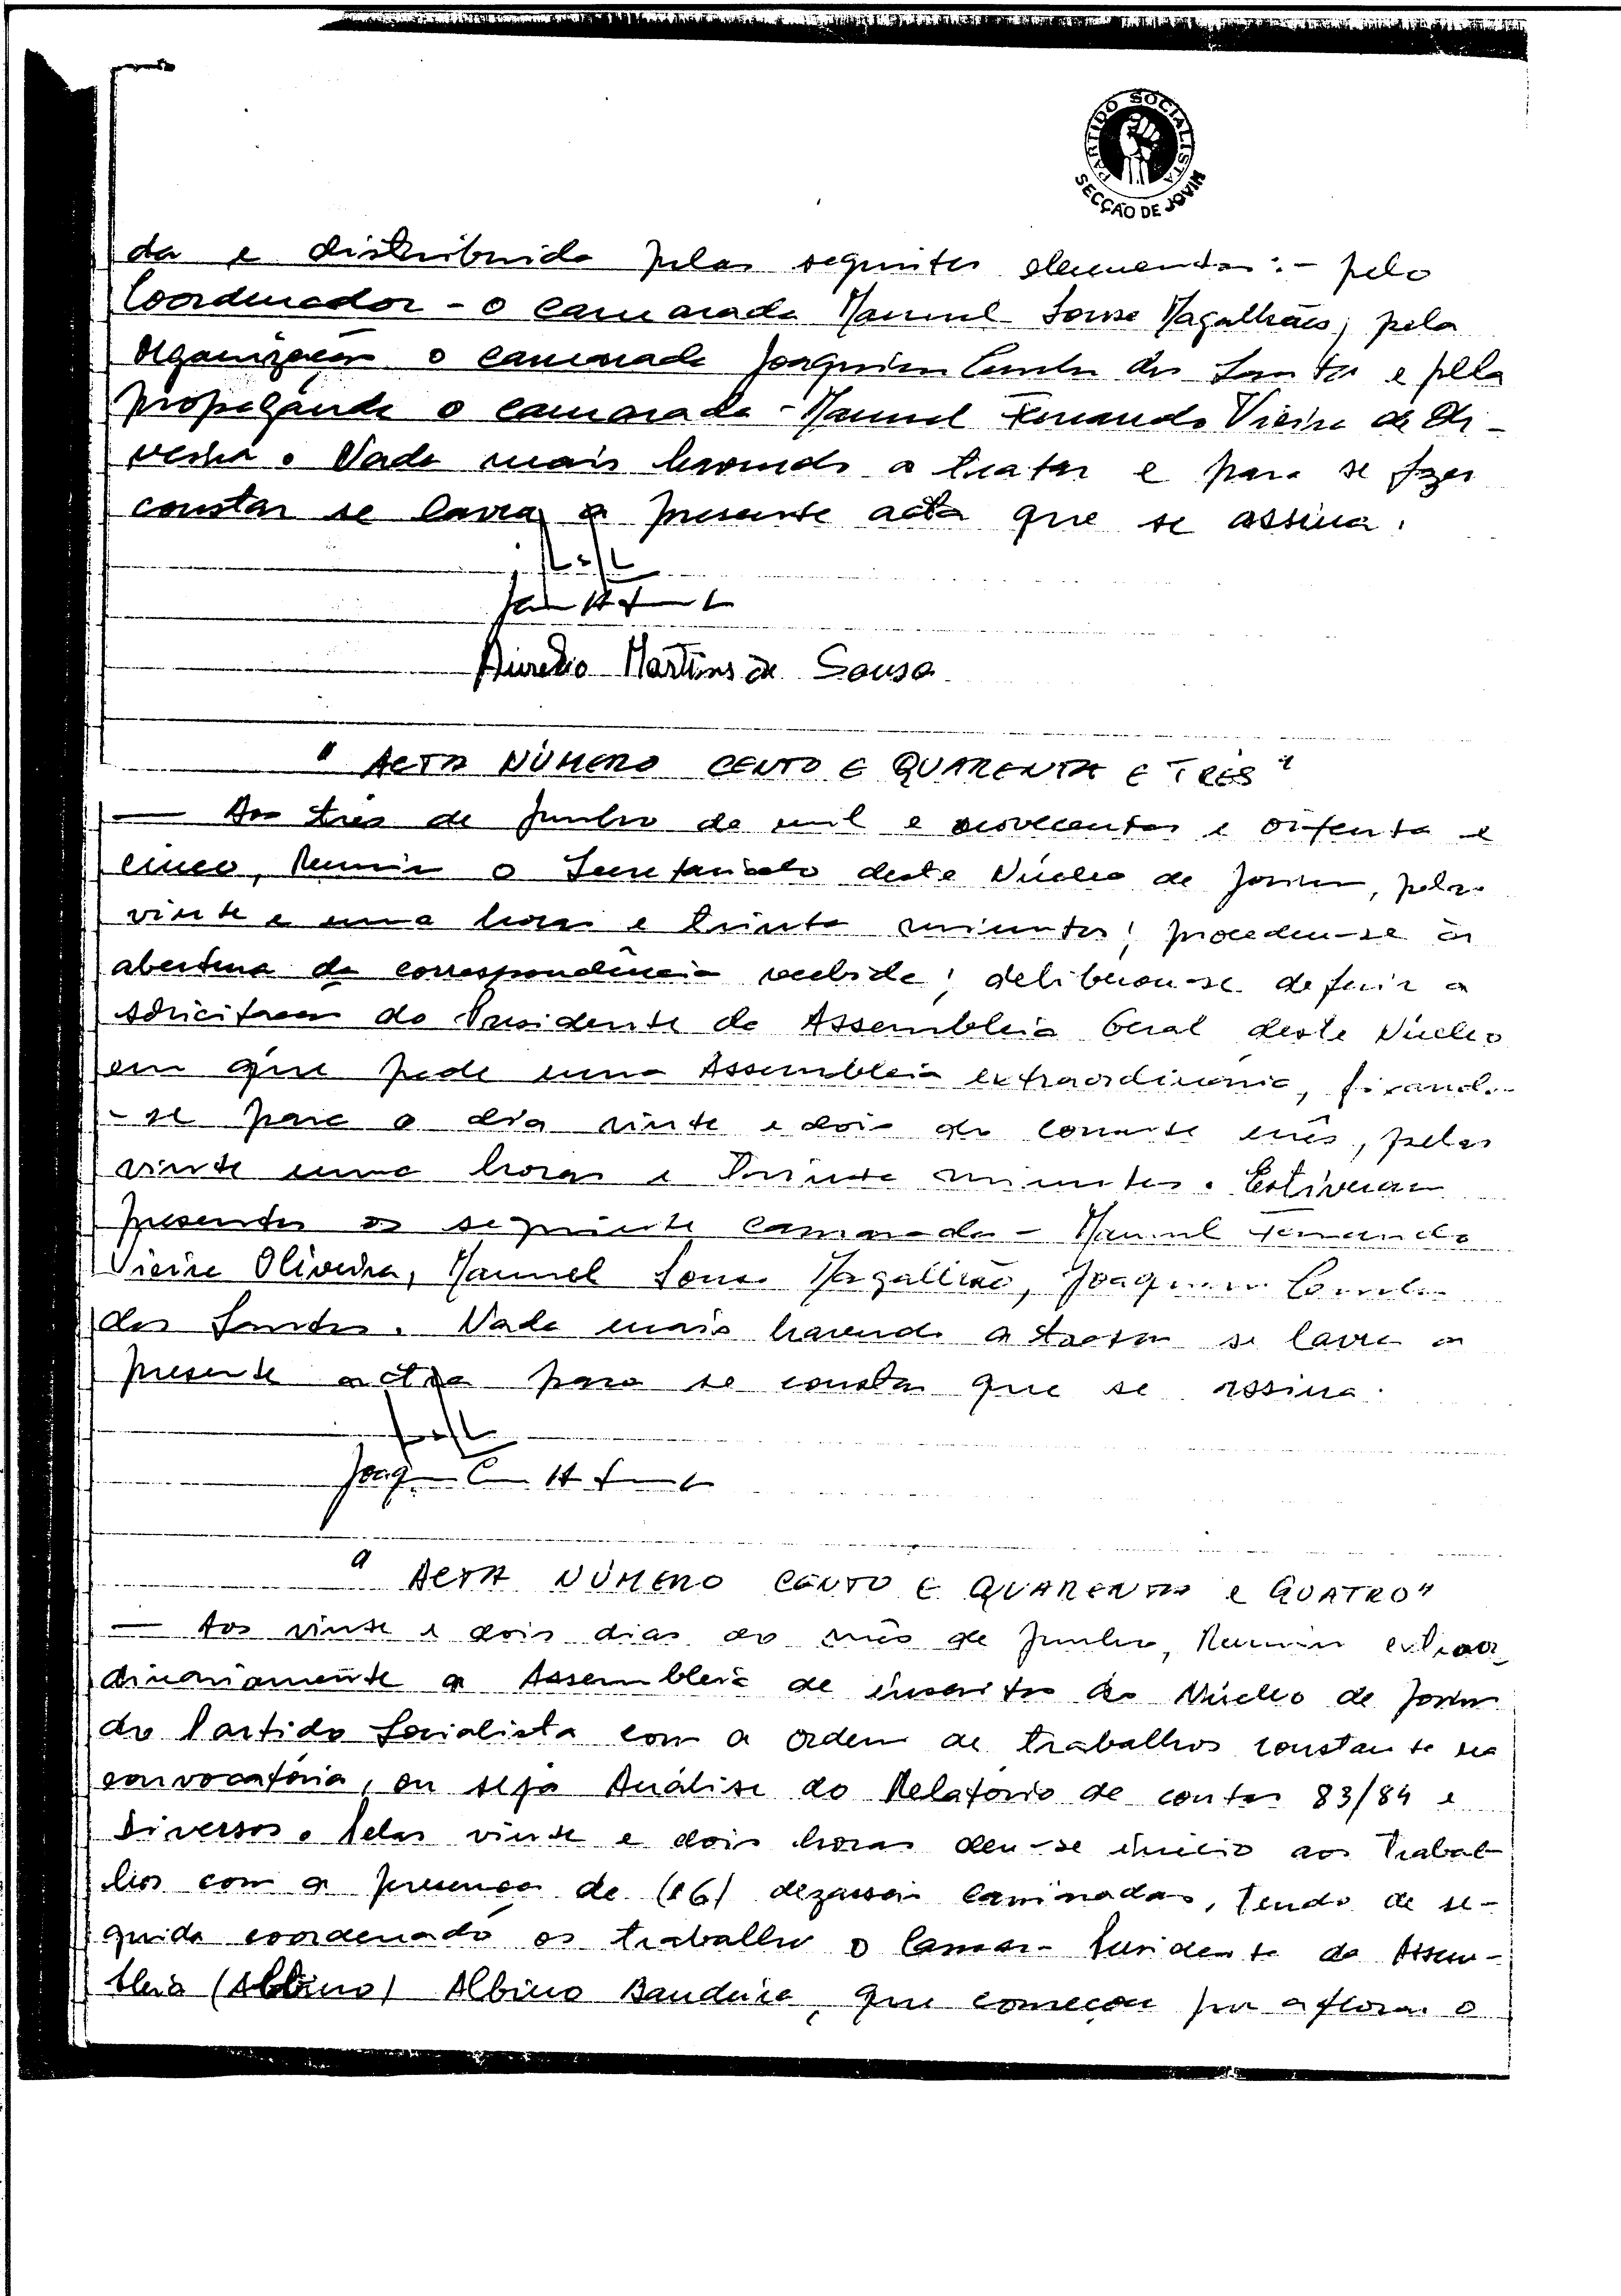 PARTIDO SOCIALISTA
SECÇÃO DE JOVIM
da e distribuida pelos seguintes elementos:- pelo
Coordenador - o camarada Manuel Sousa Magalhães, pela
organização o camarada Joaquim dos Santos e pela
propagánda o camarada - Manuel Fernando Vieira de Oli-
veira. Nada mais havendo a tratar e para se fazer
constar se lavra a presente acta que se assina.
Aurelio Martins de Sousa
" ACTA NÚMERO CENTO E QUARENTA E TRÊS "
— Aos três de Junho de mil e novecentos e oitenta e
cinco, Reuniu o Secretariado deste Núcleo de Jovim, pelas
vinte e uma horas e trinta minutos; procedeu-se à
abertura da correspondência recebida; deliberou-se deferir a
solicitação do Presidente da Assembleia Geral deste Núcleo
em que pede uma Assembleia extraordinária, fixando-
-se para o dia vinte e dois do corrente mês, pelas
vinte uma horas e trinta minutos. Estiveram
presentes os seguinte camaradas - Manuel Fernando
Vieira Oliveira, Manuel Sousa Magalhão, Joaquim
dos Santos. Nada mais havendo a tratar se lavra a
presente acta para se constar que se assina.
" ACTA NÚMERO CENTO E QUARENTA E QUATRO"
— Aos vinte e dois dias do mês de Junho, Reuniu extraor
dinariamente a Assembleia de inscritos do Núcleo de Jovim
do Partido Socialista com a ordem de trabalhos constante na
convocatória, ou seja Análise do Relatório de contas 83/84 e
Diversos. Pelas vinte e dois horas deu-se início aos Trabal-
hos com a presença de (16) dezasseis camaradas, tendo de se-
guida coordenado os trabalhos o Camara- Presidente da Assem-
bleia (Albino) Albino Bandeira, que começou por aflorar o